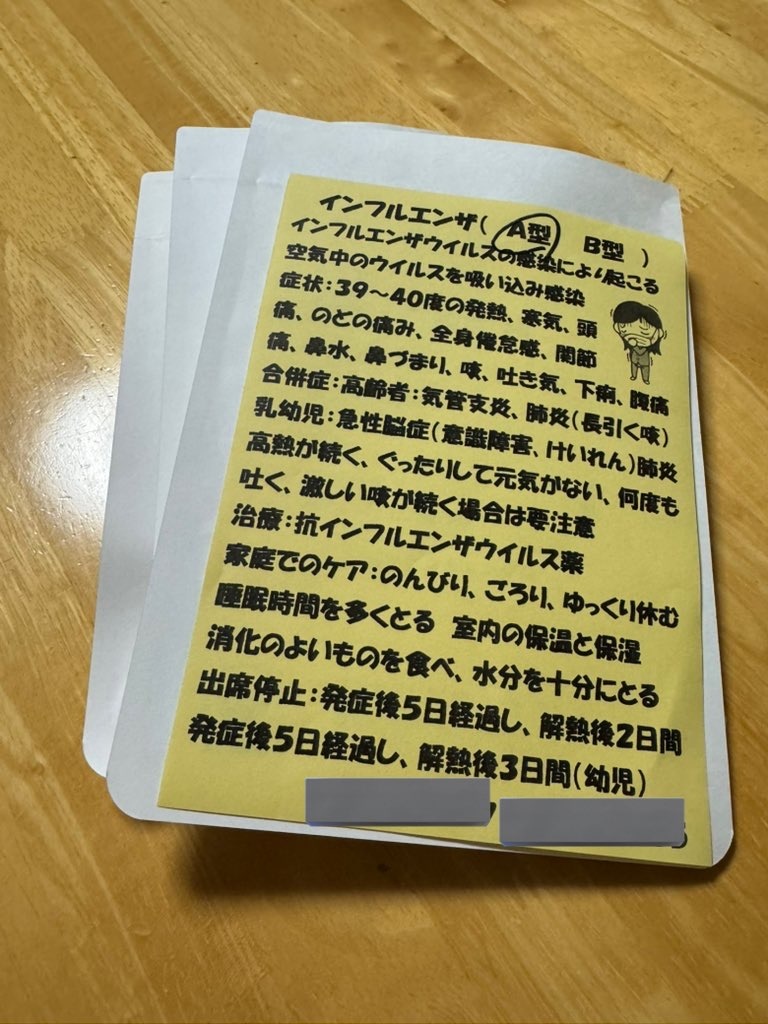 インフルエンザ( A型 B型 )
インフルエンザウイルスの感染により起こる
空気中のウイルスを吸い込み感染
症状:39~40度の発熱、寒気、頭
痛、のどの痛み、全身倦怠感、関節
痛、鼻水、鼻づまり、咳、吐き気、下痢、腹痛
合併症:高齢者:気管支炎、肺炎(長引く咳)
乳幼児:急性脳症(意識障害、けいれん)肺炎
高熱が続く、ぐったりして元気がない、何度も
吐く、激しい咳が続く場合は要注意
治療:抗インフルエンザウイルス薬
家庭でのケア:のんびり、ごろり、ゆっくり休む
睡眠時間を多くとる 室内の保温と保湿
消化のよいものを食べ、水分を十分にとる
出席停止:発症後5日経過し、解熱後2日間
発症後5日経過し、解熱後3日間(幼児)